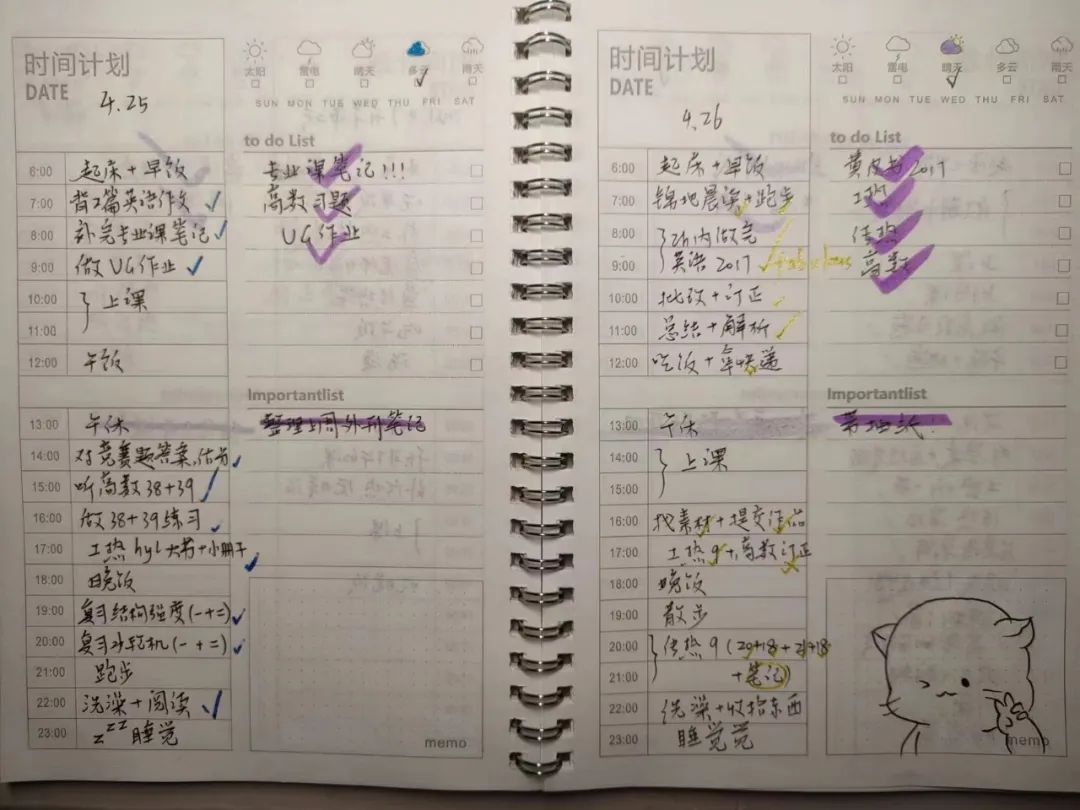 时间计划
DATE
4.25
太阳 雷电 晴天 多云 雨天
SUN MON TUE WED THU FRI SAT
to do List
6:00 起床+早饭
专业课笔记!!!
7:00 背2篇英语作文
高数习题
8:00 补完专业课笔记
UG作业
9:00 做UG作业
10:00 上课
11:00
12:00 午饭
Importantlist
13:00 午休
整理上周外刊笔记
14:00 对竞赛题答案,估分
15:00 听高数38+39
16:00 做38+39练习
17:00 工热hyl大书+小册子
18:00 晚饭
19:00 复习结构强度(一+二)
20:00 复习水轮机(一+二)
21:00 跑步
22:00 洗澡+阅读
23:00 zzz睡觉
memo
时间计划
DATE
4.26
太阳 雷电 晴天 多云 雨天
SUN MON TUE WED THU FRI SAT
to do List
6:00 起床+早饭
黄皮书2017
7:00 锦地晨读+跑步
工热
8:00 2h内做完
传热
9:00 英语2017
高数
10:00 批改+订正
11:00 总结+解析
12:00 吃饭+拿快递
Importantlist
13:00 午休
14:00 上课
15:00
16:00 找素材+提交作品
17:00 工热9+高数订正
18:00 晚饭
19:00 散步
20:00 传热9(20+18+21+18
21:00 +笔记)
22:00 洗澡+收拾东西
23:00 睡觉觉
memo